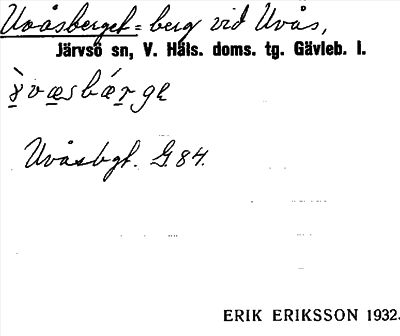 Uvåsberget = berg vid Uvås,
Järvsö sn, V. Häls. doms. tg. Gävleb. l.
Uvåsbgt. G.84.
ERIK ERIKSSON 1932.